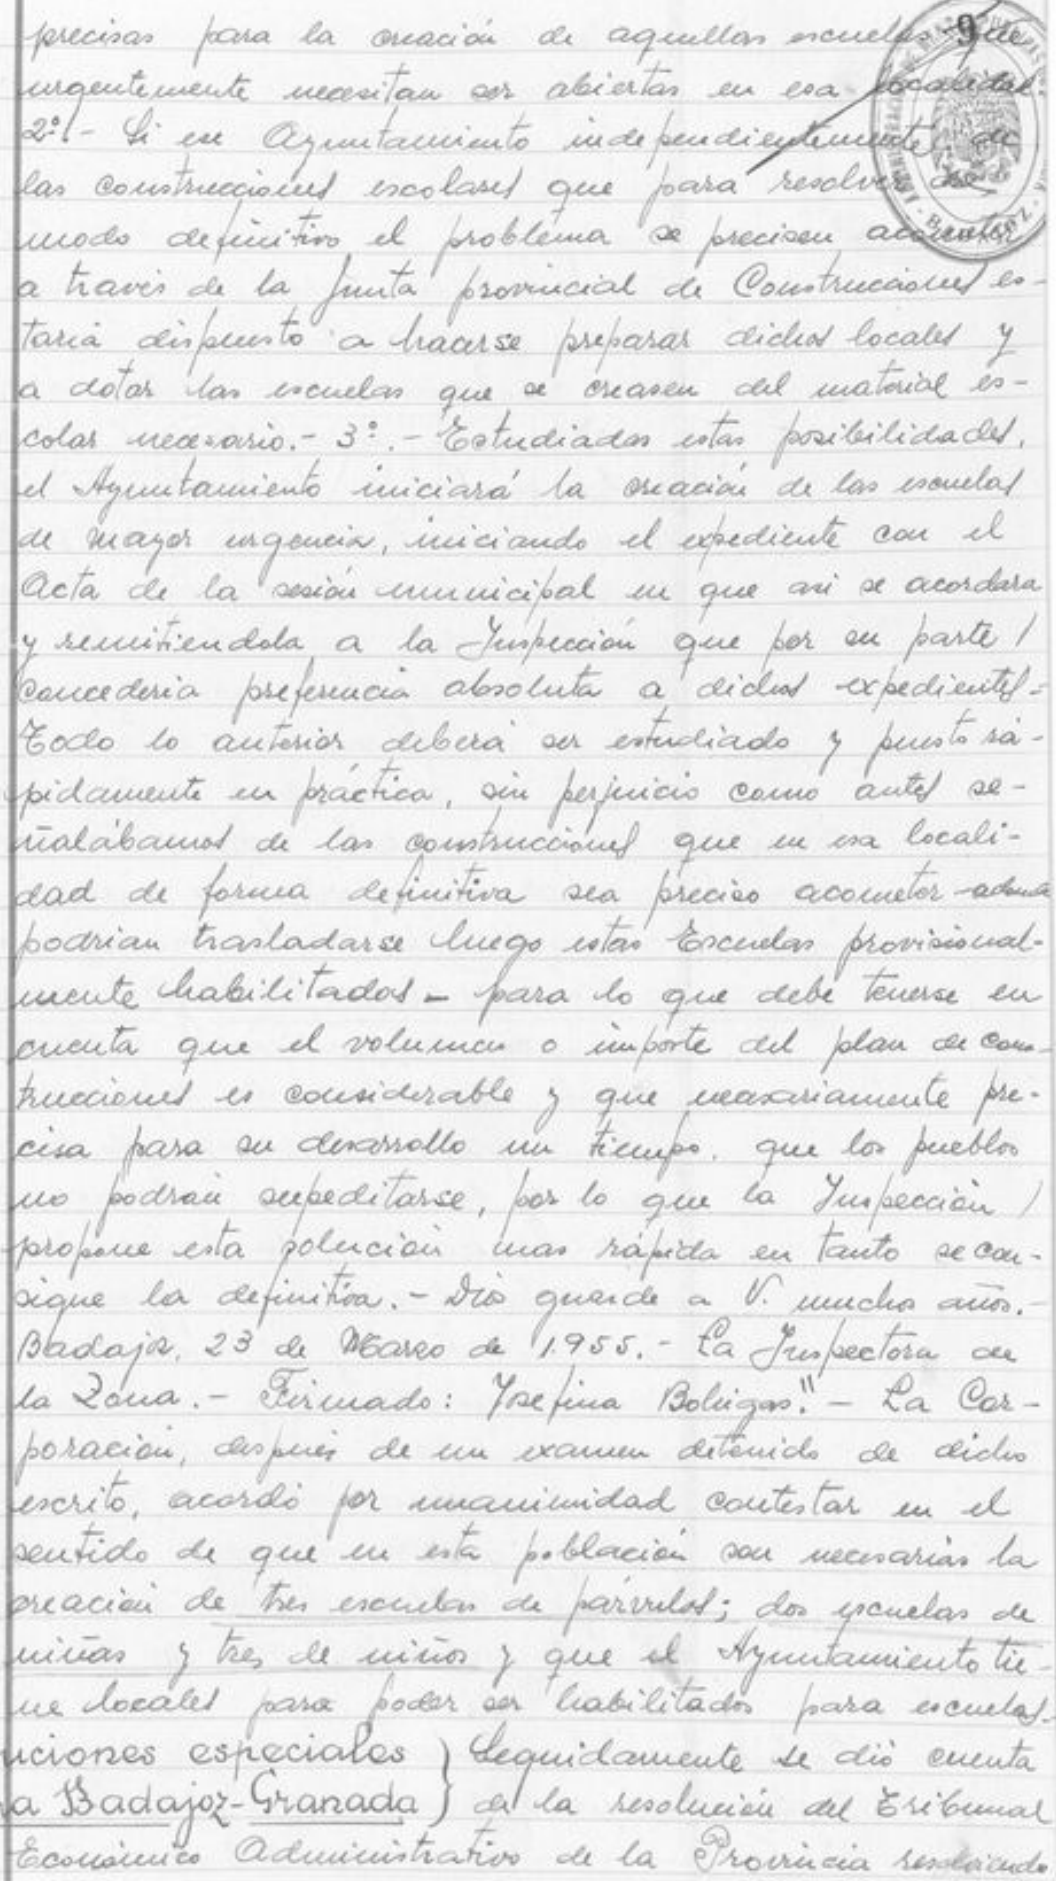 9
precisas para la creación de aquellas escuelas que
urgentemente necesitan ser abiertas en esa localidad
2º.- Si ese Ayuntamiento independientemente de
las construcciones escolares que para resolver de
modo definitivo el problema se precisen acometer
a través de la Junta provincial de Construcciones es-
taria dispuesto a hacerse preparar dichos locales y
a dotar las escuelas que se creasen del material es-
colar necesario.- 3º.- Estudiadas estas posibilidades,
el Ayuntamiento iniciará la creación de las escuelas
de mayor urgencia, iniciando el expediente con el
Acta de la sesión municipal en que asi se acordara
y remitiendola a la Inspección que por su parte /
concederia preferencia absoluta a dichos expedientes=
Todo lo anterior deberá ser estudiado y puesto rá-
pidamente en práctica, sin perjuicio como antes se-
ñalábamos de las construcciones que en esa locali-
dad de forma definitiva sea preciso acometer -adonde
podrian trasladarse luego estas Escuelas provisional-
mente habilitadas - para lo que debe tenerse en
cuenta que el volumen o importe del plan de cons-
trucciones es considerable y que necesariamente pre-
cisa para su desarrollo un tiempo, que los pueblos
no podrán supeditarse, por lo que la Inspección /
propone esta solución mas rápida en tanto se con-
sigue la definitiva.- Dios guarde a V. muchos años.-
Badajoz, 23 de Marzo de 1.955.- La Inspectora de
la Zona.- Firmado: Josefina Bohigas."- La Cor-
poración, después de un examen detenido de dicho
escrito, acordó por unanimidad contestar en el
sentido de que en esta población son necesarias la
creación de tres escuelas de párvulos; dos escuelas de
niñas y tres de niños y que el Ayuntamiento tie-
ne locales para poder ser habilitados para escuelas.-
uciones especiales } Seguidamente se dió cuenta
a Badajoz-Granada } de la resolución del Tribunal
Económico Administrativo de la Provincia resolviendo